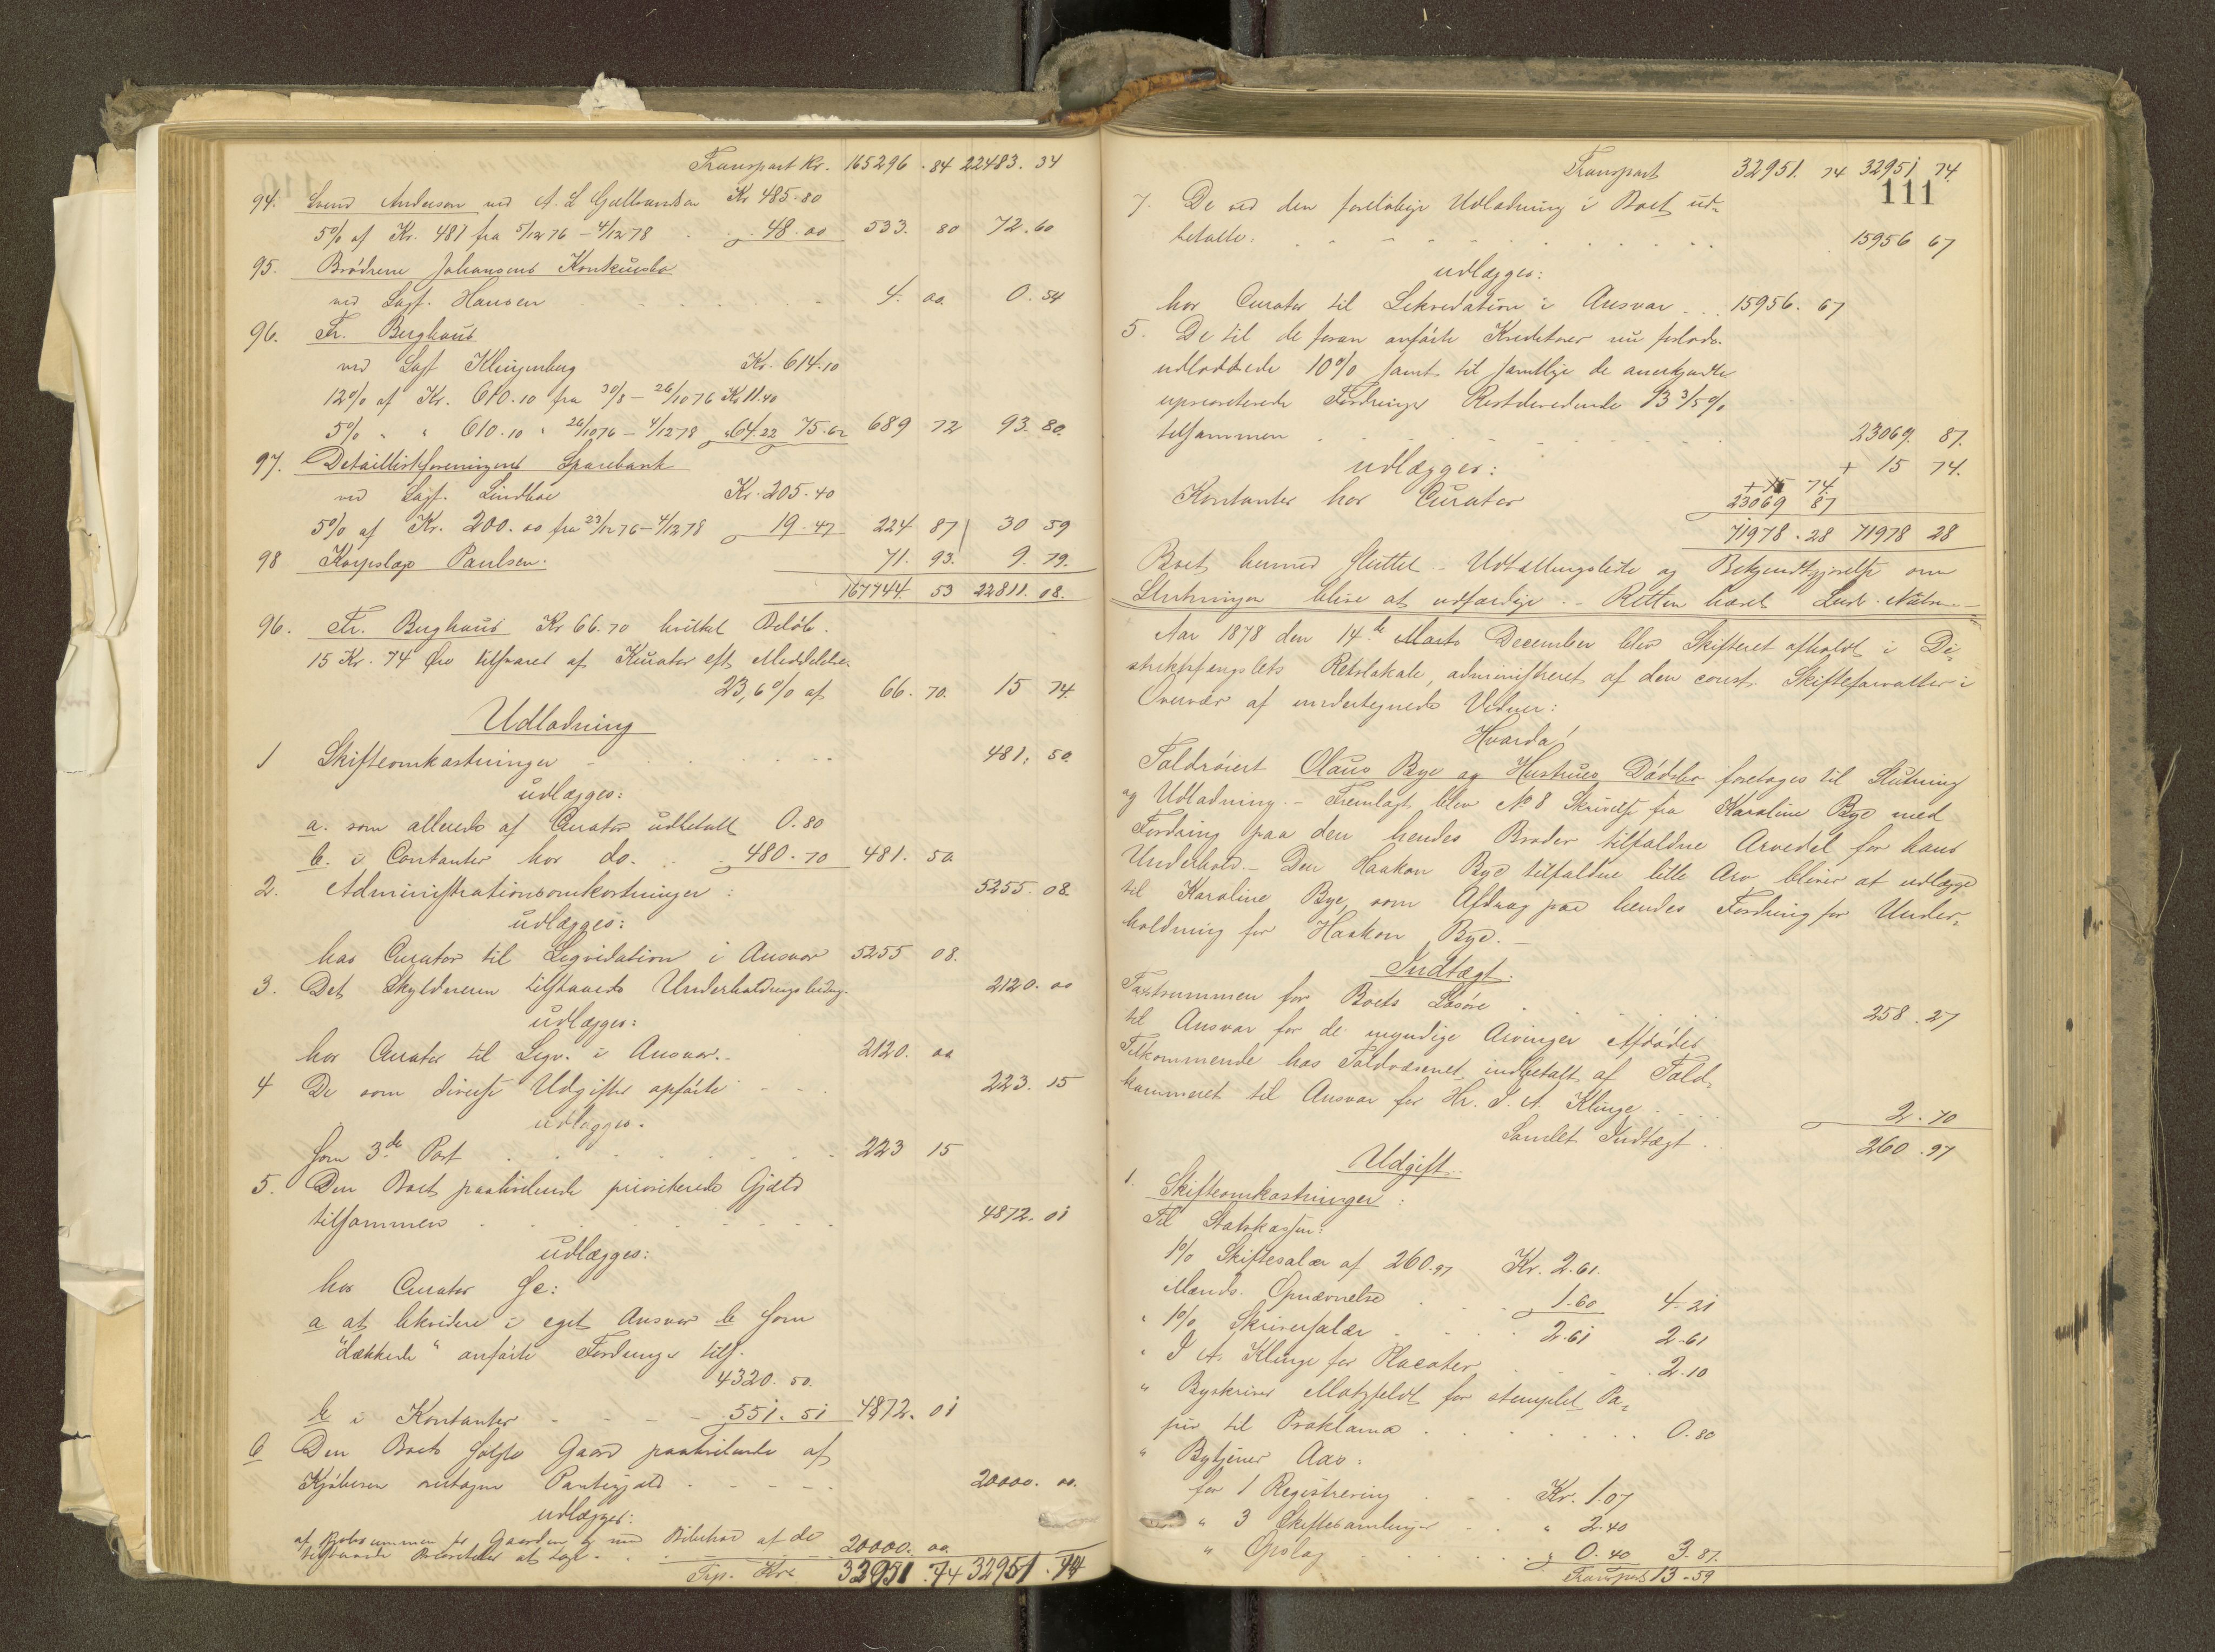 Transport Kr. 165296.84 22483.34
94. Svend Andersen ved A. L. Gulbrandsen Kr 485-80
5% af Kr. 481 fra 5/12 76 - 4/12 78 48.00 533.80 72.60
95. Brødrene Johansens Konkursbo
ved Sagf. Hansen 4.00 0.54
96. Fr. Berghaus
ved Sagf Klingenberg Kr. 614.10
12% af Kr. 610.10 fra 30/8 - 26/10 76 Kr 11.40
5% " " 610.10 " 26/10 76 - 4/12 78 " 64.22 75.62 689 72 93.80
97. Detaillistforeningens Sparebank
ved Sagf. Lindboe Kr. 205.40
5% af Kr. 200.00 fra 23/12 76 - 4/12 78 19-47 224 87 30 59
98 Korpslæge Paulsen. 71.93. 9.79.
167744.53 22811.08.
96. Fr. Berghaus Kr 66.70 hvilket Beløb
15 Kr. 74 Øre tilsvares af Kurator eft. Meddelelse.
23,6% af 66.70. 15 74.
Udlodning
1 Skifteomkostninger 481.50.
udlægges:
a. som allerede af Curator udbetalt 0.80
b. i Contanter hos do. 480-70 481.50
2. Administrationsomkostninger: 5255.08
udlægges:
hos Curator til Liqvidation i Ansvar 5255 08.
3. Det Skyldneren tilstaaede Underholdningsbidrag. 2120.00
udlægges:
hos Curator til Liqv. i Ansvar. 2120.00
4 De som diverse Udgifter opførte 223.15
udlægges.
som 3de Post 223 15
5. Den Boet paahvilende prioriterede Gjæld
tilsammen 4872.01
udlægges:
hos Curator
a at likvidere i eget Ansvar b som
"dækkede" anførte Fordringer tils.
4320.50.
b i Kontanter 551.51 4872.01
6 Den Boets solgte Gaard paahvilende af
Kjøberen overtagne Pantegjæld 20000.00.
udlægges:
af Budsummen for Gaarden og med Bibehold af de
tilstaaede Prioriteter at tage 20000.00.
Trp. Kr. 32951.74 32951.74
Transport 32951.74 32951 74.
111
7. De ved den foreløbige Udlodning i Boet ud-
betalte. 15956 67
udlægges:
hos Curator til Likvidation i Ansvar 15956.67
5. De til de foran anførte Kreditorer nu
udloddede 10% samt til samtlige de anerkjendte
uprioriterede Fordringer Restdividende 13 3/5%
tilsammen 23069.87.
udlægges: + 15 74.
+ 15 74.
Kontanter hos Curator 23069 87
71978.28 71978 28
Boet hermed sluttet - Udbetalingsliste og Bekjendtgjørelse om
Slutningen blive at udfærdige. - Retten hævet
Aar 1878 den 14de Marts December blev Skifteret afholdt i Di-
striktsfengslets Retslokale, administreret af den const. Skifteforvalter i
Overvær af undertegnede Vidner:
Hvorda!
Toldrøiert Olaus Bye og Hustrues Dødsbo foretoges til Slutning
og Udlodning. - Fremlagt blev No 8 Skrivelse fra Karoline Bye med
Fordring paa den hendes Broder tilfaldne Arvedel for hans
Underhold. - Den Haakon Bye tilfaldne lille Arv bliver at udlægge
til Karoline Bye, som Afdrag paa hendes Fordring for Under-
holdning for Haakon Bye. -
Indtægt.
Taxtsummen for Boets Løsøre 258.27
til Ansvar for de myndige Arvinger Afdødes
Tilkommende hos Toldvæsenet, indbetalt af Told-
kammeret til Ansvar for Hr. I. A. Klinge 2.70
Samlet Indtægt. 260.97
Udgift.
1. Skifteomkostninger:
Til Statskassen:
1% Skiftesalær af 260.97 Kr. 2.61.
Mænds Opnævnelse 1-60 4-21
" 1% Skriversalær 2.61 2-61
" I A. Klinge for Placater 2.10
" Byskriver Motzfeldt for stemplet Pa-
pir til Proklama 0.80
" Bytjener Aas:
for 1 Registrering Kr. 1.07
" 3 Skiftesamlinger " 2.40
" Opslag " 0.40 3.87.
Transport 13-59